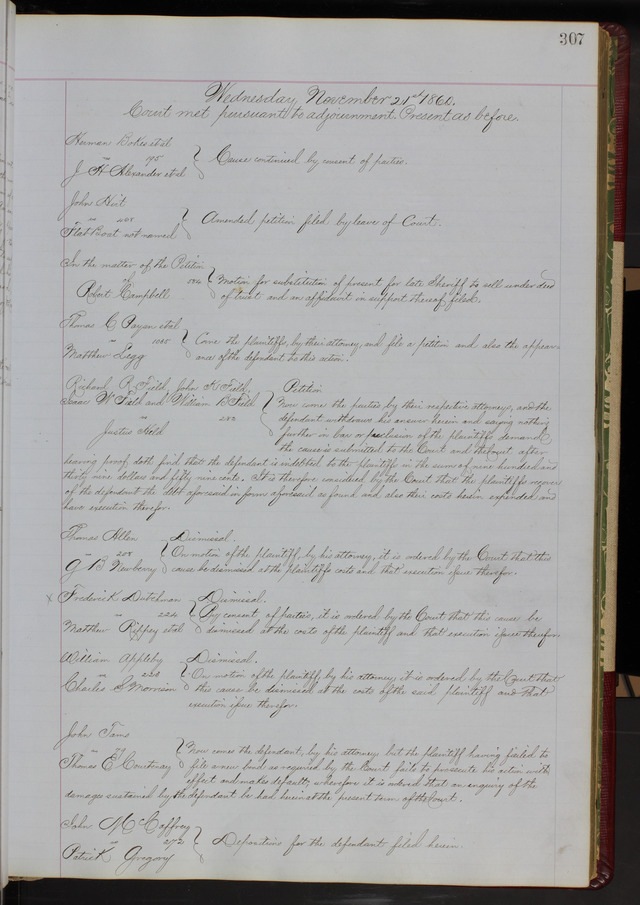 307
Wednesday November 21st 1860.
Court met pursuant to adjournment. Present as before.
Herman et al
vs 195
J H Alexander et al
Cause continued by consent of parties.
John
vs
Flat Boat not named
Amended petition filed by leave of Court.
In the matter of the Petition
of 584
Robert Campbell
Motion for substitution of present for late Sheriff to sell under deed
of trust and an affidavit in support thereof filed.
Thomas C et al
vs 1045
Matthew Legg
Come the plaintiffs, by their attorney, and file a petition and also the appear-
ance of the defendant to this action.
Richard R. Field, John H Field,
Isaac W Field and William B Field
vs
Justus Field
Petition
Now come the parties by their respective attorneys, and the
defendant withdraws his answer herein and saying nothing
further in bar or preclusion of the plaintiffs demand
the cause is submitted to the Court and the Court after
hearing proof, doth find that the defendant is indebted to the plaintiff in the sum of nine hundred and
thirty nine dollars and fifty nine cents. It is therefore considered by the Court that the plaintiffs recover
of the defendant the debt aforesaid in form aforesaid as found and also their costs herein expended and
have execution therefor.
Thomas Allen
vs 208
G B Newberry
Dismissal.
On motion of the plaintiff, by his attorney, it is ordered by the Court that this
cause be dismissed at the plaintiffs costs and that execution issue therefor.
x Frederick Dutchman
vs 224
Matthew Rippey et al
Dismissal.
By consent of parties, it is ordered by the Court that this cause be
dismissed at the costs of the plaintiff and that execution issue therefor.
William Appleby
vs
Charles S Morrison
Dismissal.
On motion of the plaintiff, by his attorney, it is ordered by the Court that
this cause be dismissed at the costs of the said plaintiff and that
execution issue therefor.
John Tams
vs
Thomas E Courtenay
Now comes the defendant, by his attorney, but the plaintiff having failed to
file a new bond as required by the Court fails to prosecute his action with
effect and makes default; wherefore it is ordered that an enquiry of the
damages sustained by the defendant be had herein at the present term of the Court.
John McCaffrey
vs 272
Patrick Gregory
Depositions for the defendant filed herein.